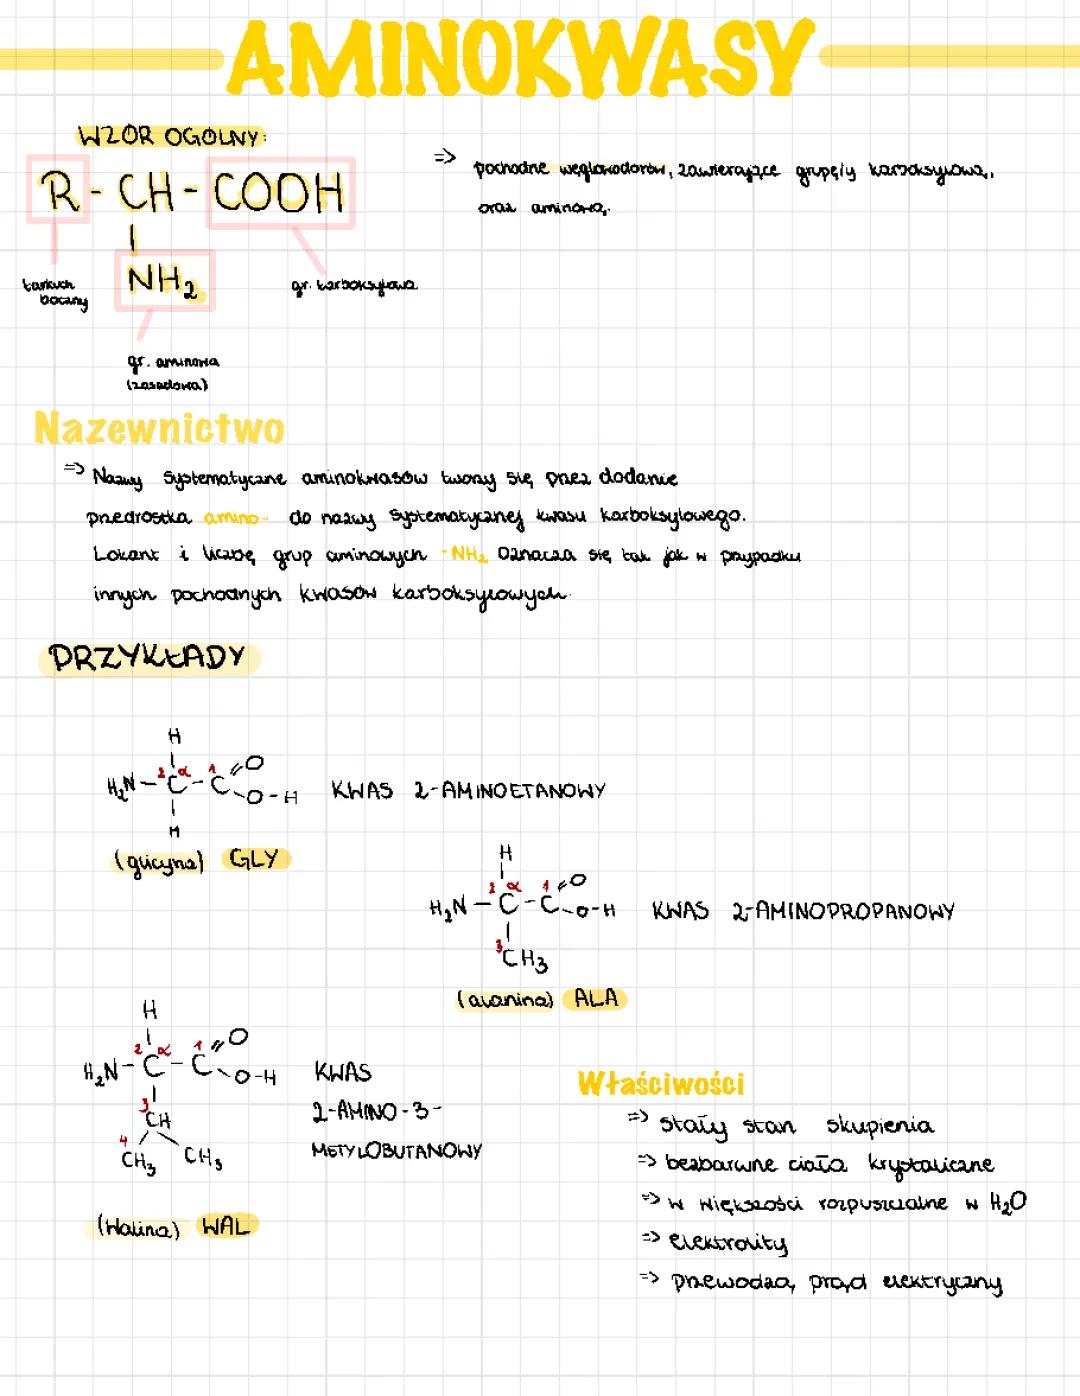 AMINOKWASY
WZÓR OGÓLNY:
R - CH - COOH
|
NH₂
łańcuch
boczny
gr. karboksylowa
gr. aminowa
(zasadowa)
=> pochodne węglowodorów, zawierające grupę/y karboksylową,
oraz aminową.
Nazewnictwo
=> Nazwy systematyczne aminokwasów tworzy się przez dodanie
przedrostka amino- do nazwy systematycznej kwasu karboksylowego.
Lokant i liczbę grup aminowych -NH₂ oznacza się tak jak w przypadku
innych pochodnych kwasów karboksylowych.
PRZYKŁADY
H
H₂N - ²C^α - ¹C = O
O - H
H
KWAS 2-AMINOETANOWY
(glicyna) GLY
H
H₂N - ²C^α - ¹C = O
O - H
³CH₃
KWAS 2-AMINOPROPANOWY
(alanina) ALA
H
H₂N - ²C^α - ¹C = O
O - H
³CH
⁴CH₃ CH₃
KWAS
2-AMINO-3-
METYLOBUTANOWY
(Walina) WAL
Właściwości
=> stały stan skupienia
=> bezbarwne ciała krystaliczne
=> w większości rozpuszczalne w H₂O
=> elektrolity
=> przewodzą prąd elektryczny